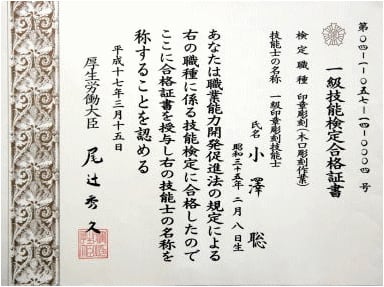 第〇四-一-〇五七-一四-〇〇〇四号
一級技能検定合格証書
検定職種 印章彫刻(木口彫刻作業)
技能士の名称 一級印章彫刻技能士
氏名 小澤 聡
昭和三十五年二月八日生
あなたは職業能力開発促進法の規定による
右の職種に係る技能検定に合格したので
ここに合格証書を授与し右の技能士の名称を
称することを認める
平成十七年三月十五日
厚生労働大臣 尾辻秀久